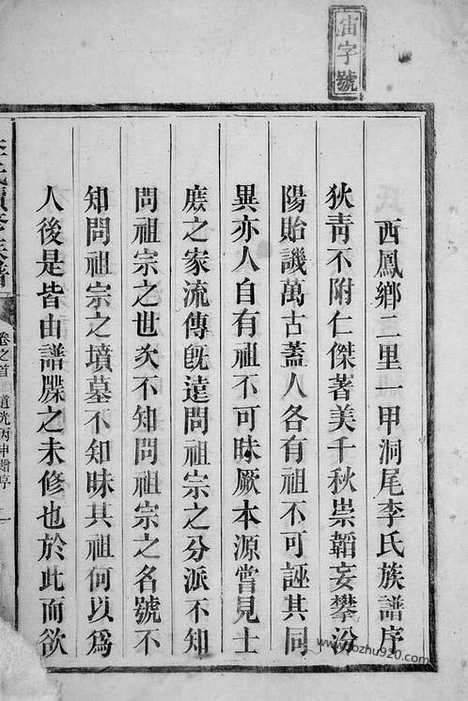 宙字號
西鳳鄉二里一甲洞尾李氏族譜序
狄青不附仁傑著美千秋崇韜妄攀汾
陽貽譏萬古蓋人各有祖不可誣其同
異亦人自有祖不可昧厥本源嘗見士
庶之家流傳旣遠問祖宗之分派不知
問祖宗之世次不知問祖宗之名號不
知問祖宗之墳墓不知昧其祖何以爲
人後是皆由譜牒之未修也於此而欲
李氏續修族譜
卷之首
道光丙申贈序
一
www.zozhu920.com